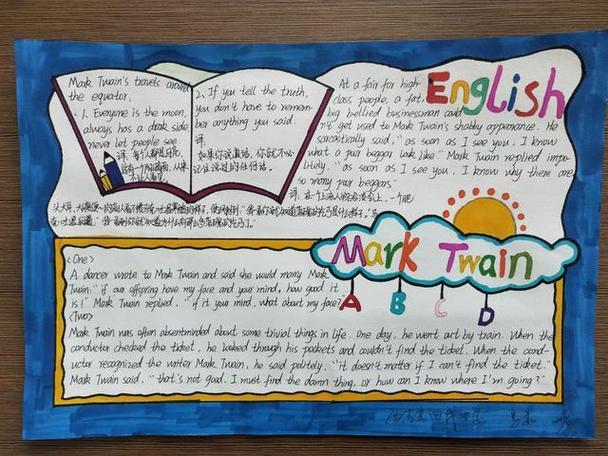 Mark Twain's travels around
the equator:
1. Everyone is the moon,
always has a dark side
never let people see
译: 每个人都是月亮,
总有一个阴暗面, 从来
不让人看见
2. If you tell the truth,
you don't have to remem-
ber anything you said.
译:
如果你说真话, 你就不必
记住说过的任何话。
English
At a fair for high
class people, a fat,
big bellied businessman could
n't get used to Mark Twain's shabby appearance. He
sarcastically said, "as soon as I see you, I know
what a pair beggar look like" Mark Twain replied impo-
litely, "as soon as I see you, I know why there are
so many pair beggars"
译: 在一个上流人的
Mark Twain
A B C D
<One>
A dancer wrote to Mark Twain and said she would marry Mark
Twain: "if our offspring have my face and your mind, how good it
is!" Mark Twain replied, "if it your mind, what about my face?"
<Two>
Mark Twain was often absentminded about some trivial things in life. One day, he went out by train. When the
conductor checked the ticket, he looked through his pockets and couldn't find the ticket. When the cond-
uctor recognized the writer Mark Twain, he said politely, "it doesn't matter if I can't find the ticket."
Mark Twain said, "that's not good, I must find the damn thing, or how can I know where I'm going?"